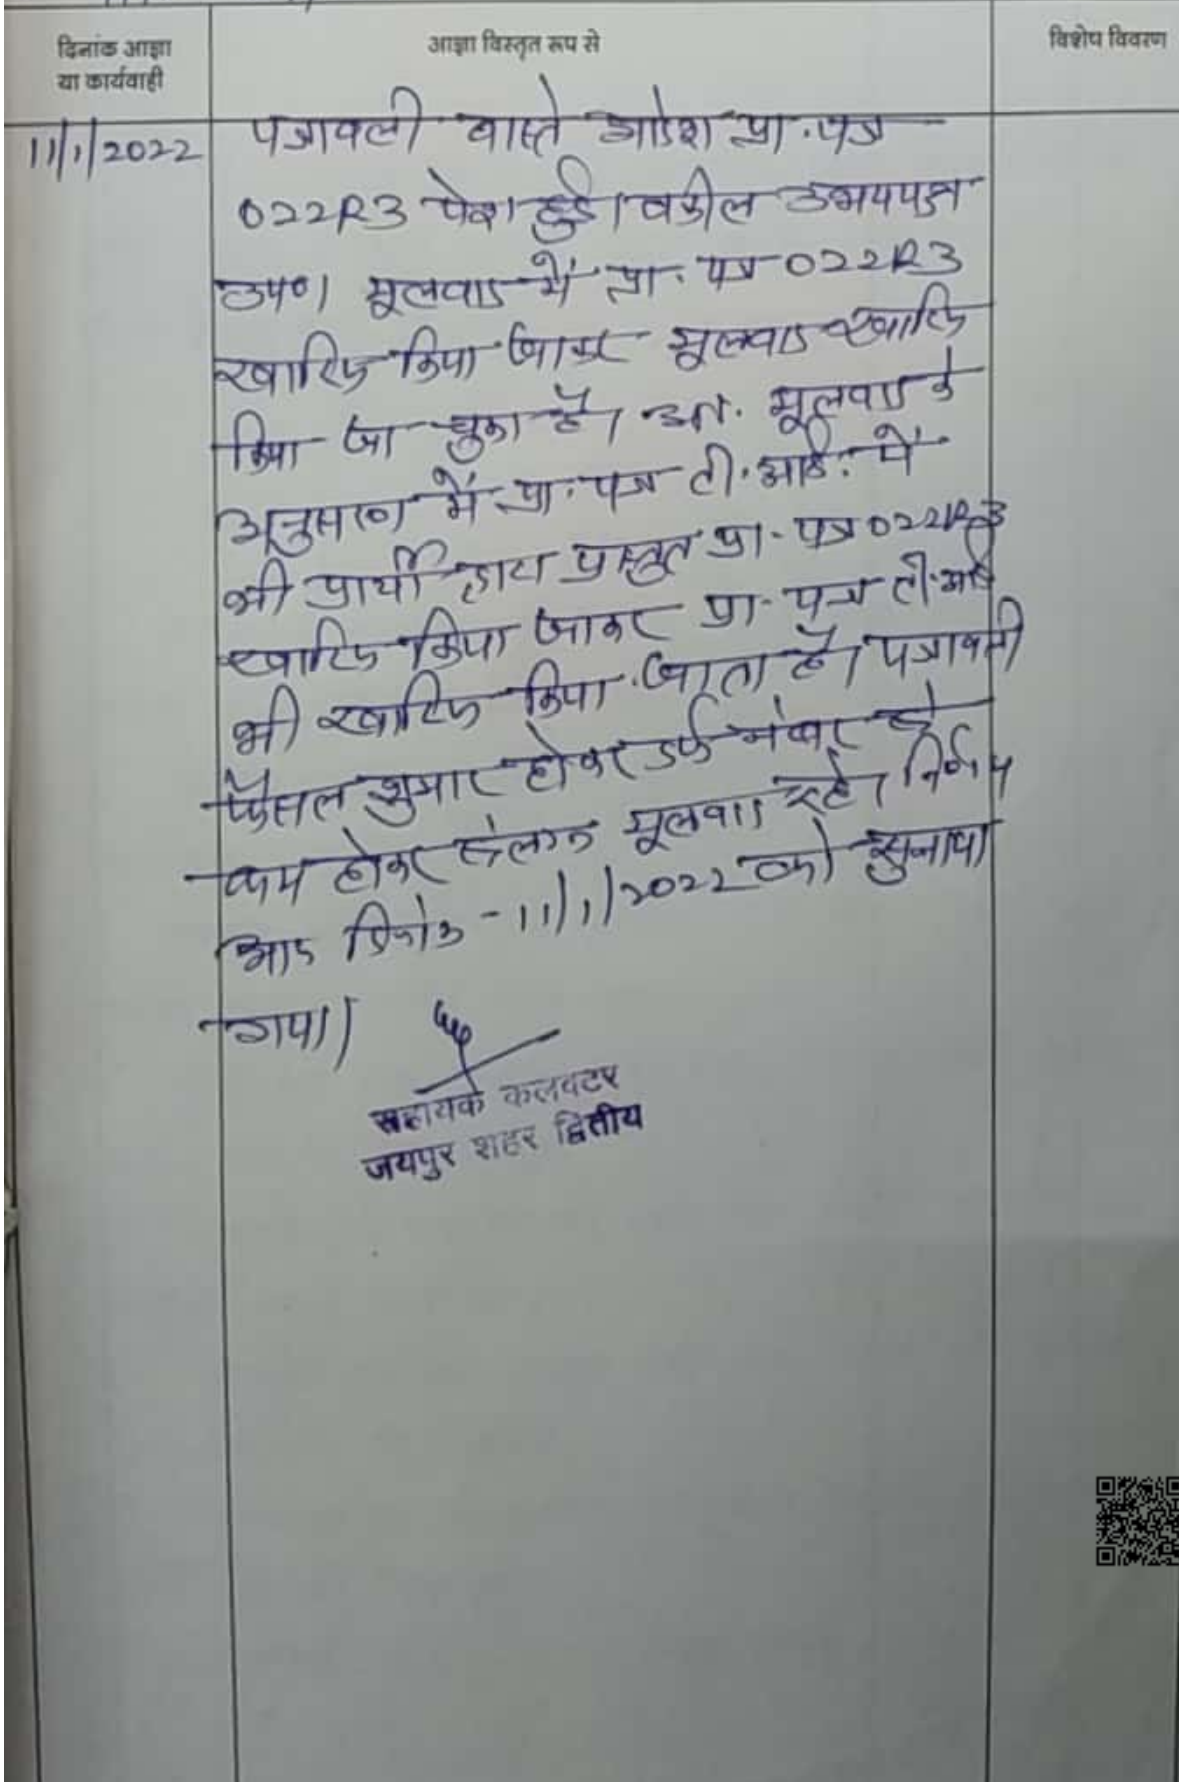 दिनांक आज्ञा
या कार्यवाही
आज्ञा विस्तृत रूप से
विशेष विवरण
11/1/2022
पत्रावली वास्ते आदेश प्रा.पत्र
022R3 पेश हुई। वकील उभयपक्ष
उप०। मूलवाद में प्रा. पत्र 022R3
खारिज किया जाकर मूलवाद खारिज
किया जा चुका है। अतः मूलवाद के
अनुसरण में प्रा. पत्र टी.आई. में
भी प्रार्थी द्वारा प्रस्तुत प्रा. पत्र 022R3
खारिज किया जाकर प्रा. पत्र टी.आई
भी खारिज किया जाता है। पत्रावली
फैसल शुमार होकर नंबर से
कम होकर संलग्न मूलवाद रहे। निर्णय
आज दिनांक - 11/1/2022 को सुनाया
गया।
सहायक कलक्टर
जयपुर शहर द्वितीय